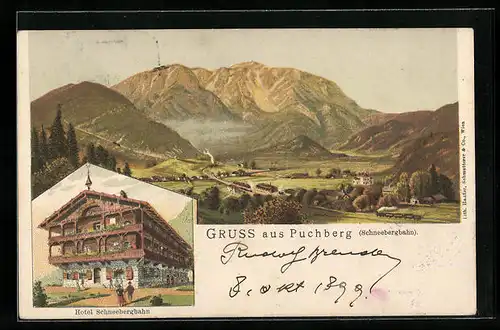 GRUSS aus Puchberg (Schneebergbahn).
Rudolf
8. Okt 1899
Hotel Schneebergbahn
Lith. Haufler, Schmutterer & Co., Wien